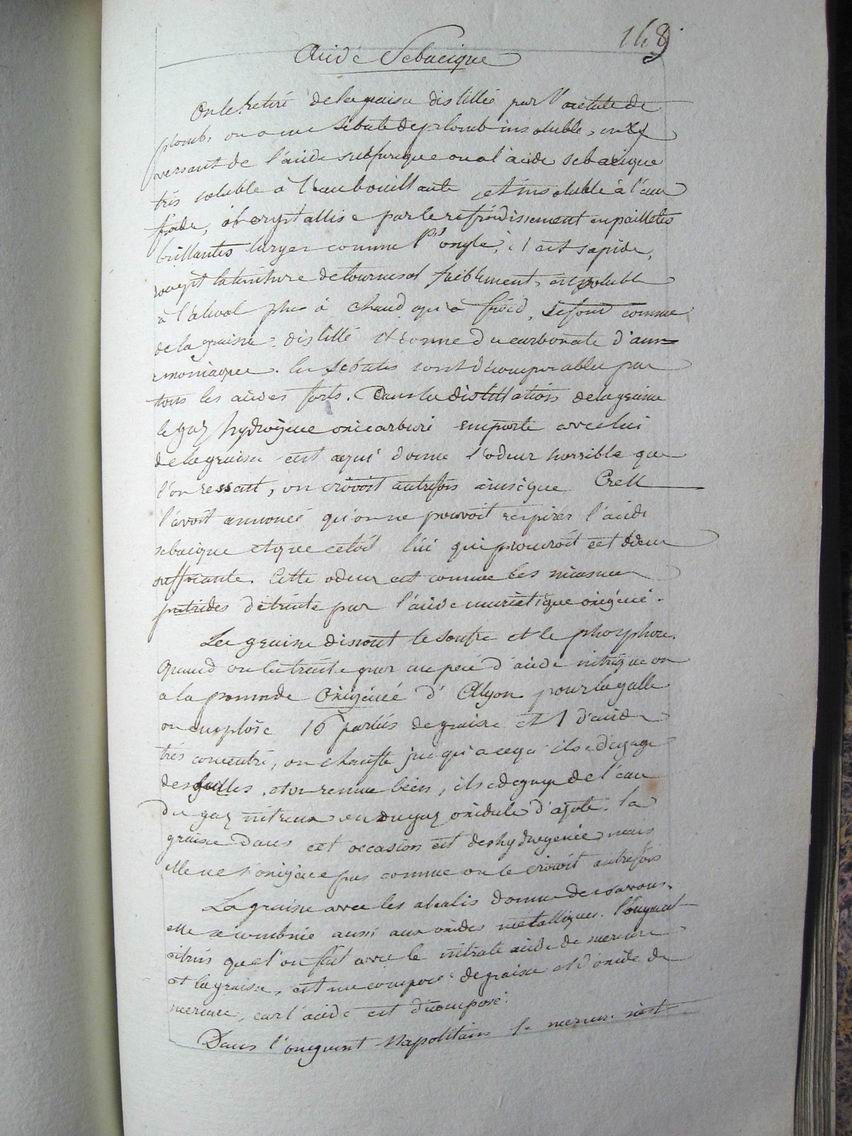 148
Acide Sebacique
On le retire de la graisse distillée par l'acetate de
plomb, on a un sebate de plomb insoluble, en y
versant de l'acide sulfurique on a l'acide sebacique
très soluble à l'eau bouillante et insoluble à l'eau
froide, et crystallise par le refroidissement en paillettes
brillantes larges comme l'ongle, il est sapide,
rougit la teinture de tournesol faiblement, est soluble
à l'alcool plus à chaud qu'a froid, se fond comme
de la graisse, distillé il donne du carbonate d'am=
moniaque. les sebates sont décomposables par
tous les acides forts. Dans la distillation de la graisse
le gaz hydrogene oxicarburé emporte avec lui
de la graisse c'est ce qui donne l'odeur horrible que
l'on ressent, on croioit autrefois Crell
l'avoit annoncé qu'on ne pouvoit respirer l'acide
sebacique et que cetoit lui qui produisoit cet odeur
suffocante. Cette odeur est comme les miasmes
putrides détruite par l'acide muriatique oxigéné.
La graisse dissout le soufre et le phosphore.
Quand on la traite par un peu d'acide nitrique on
a la pommade Oxigénée d'Alyon pour la galle
on emploie 16 parties de graisse et 1 d'acide
très concentré, on chauffe jusqu'a ce qu'il se dégage
des bulles, et on remue bien, il se degage de l'eau
du gaz nitreux ou du gaz oxidule d'azote. la
graisse dans cet occasion est deshydrogenée mais
elle ne s'oxigene pas comme on le croioit autrefois
La graisse avec les alcalis donne des savons,
elle se combine aussi aux oxides metalliques. l'onguent
citrin que l'on fait avec le nitrate acide de mercure
et la graisse, est un composé de graisse et d'oxide de
mercure, car l'acide est décomposé.
Dans l'onguent Napolitain le mercure n'est